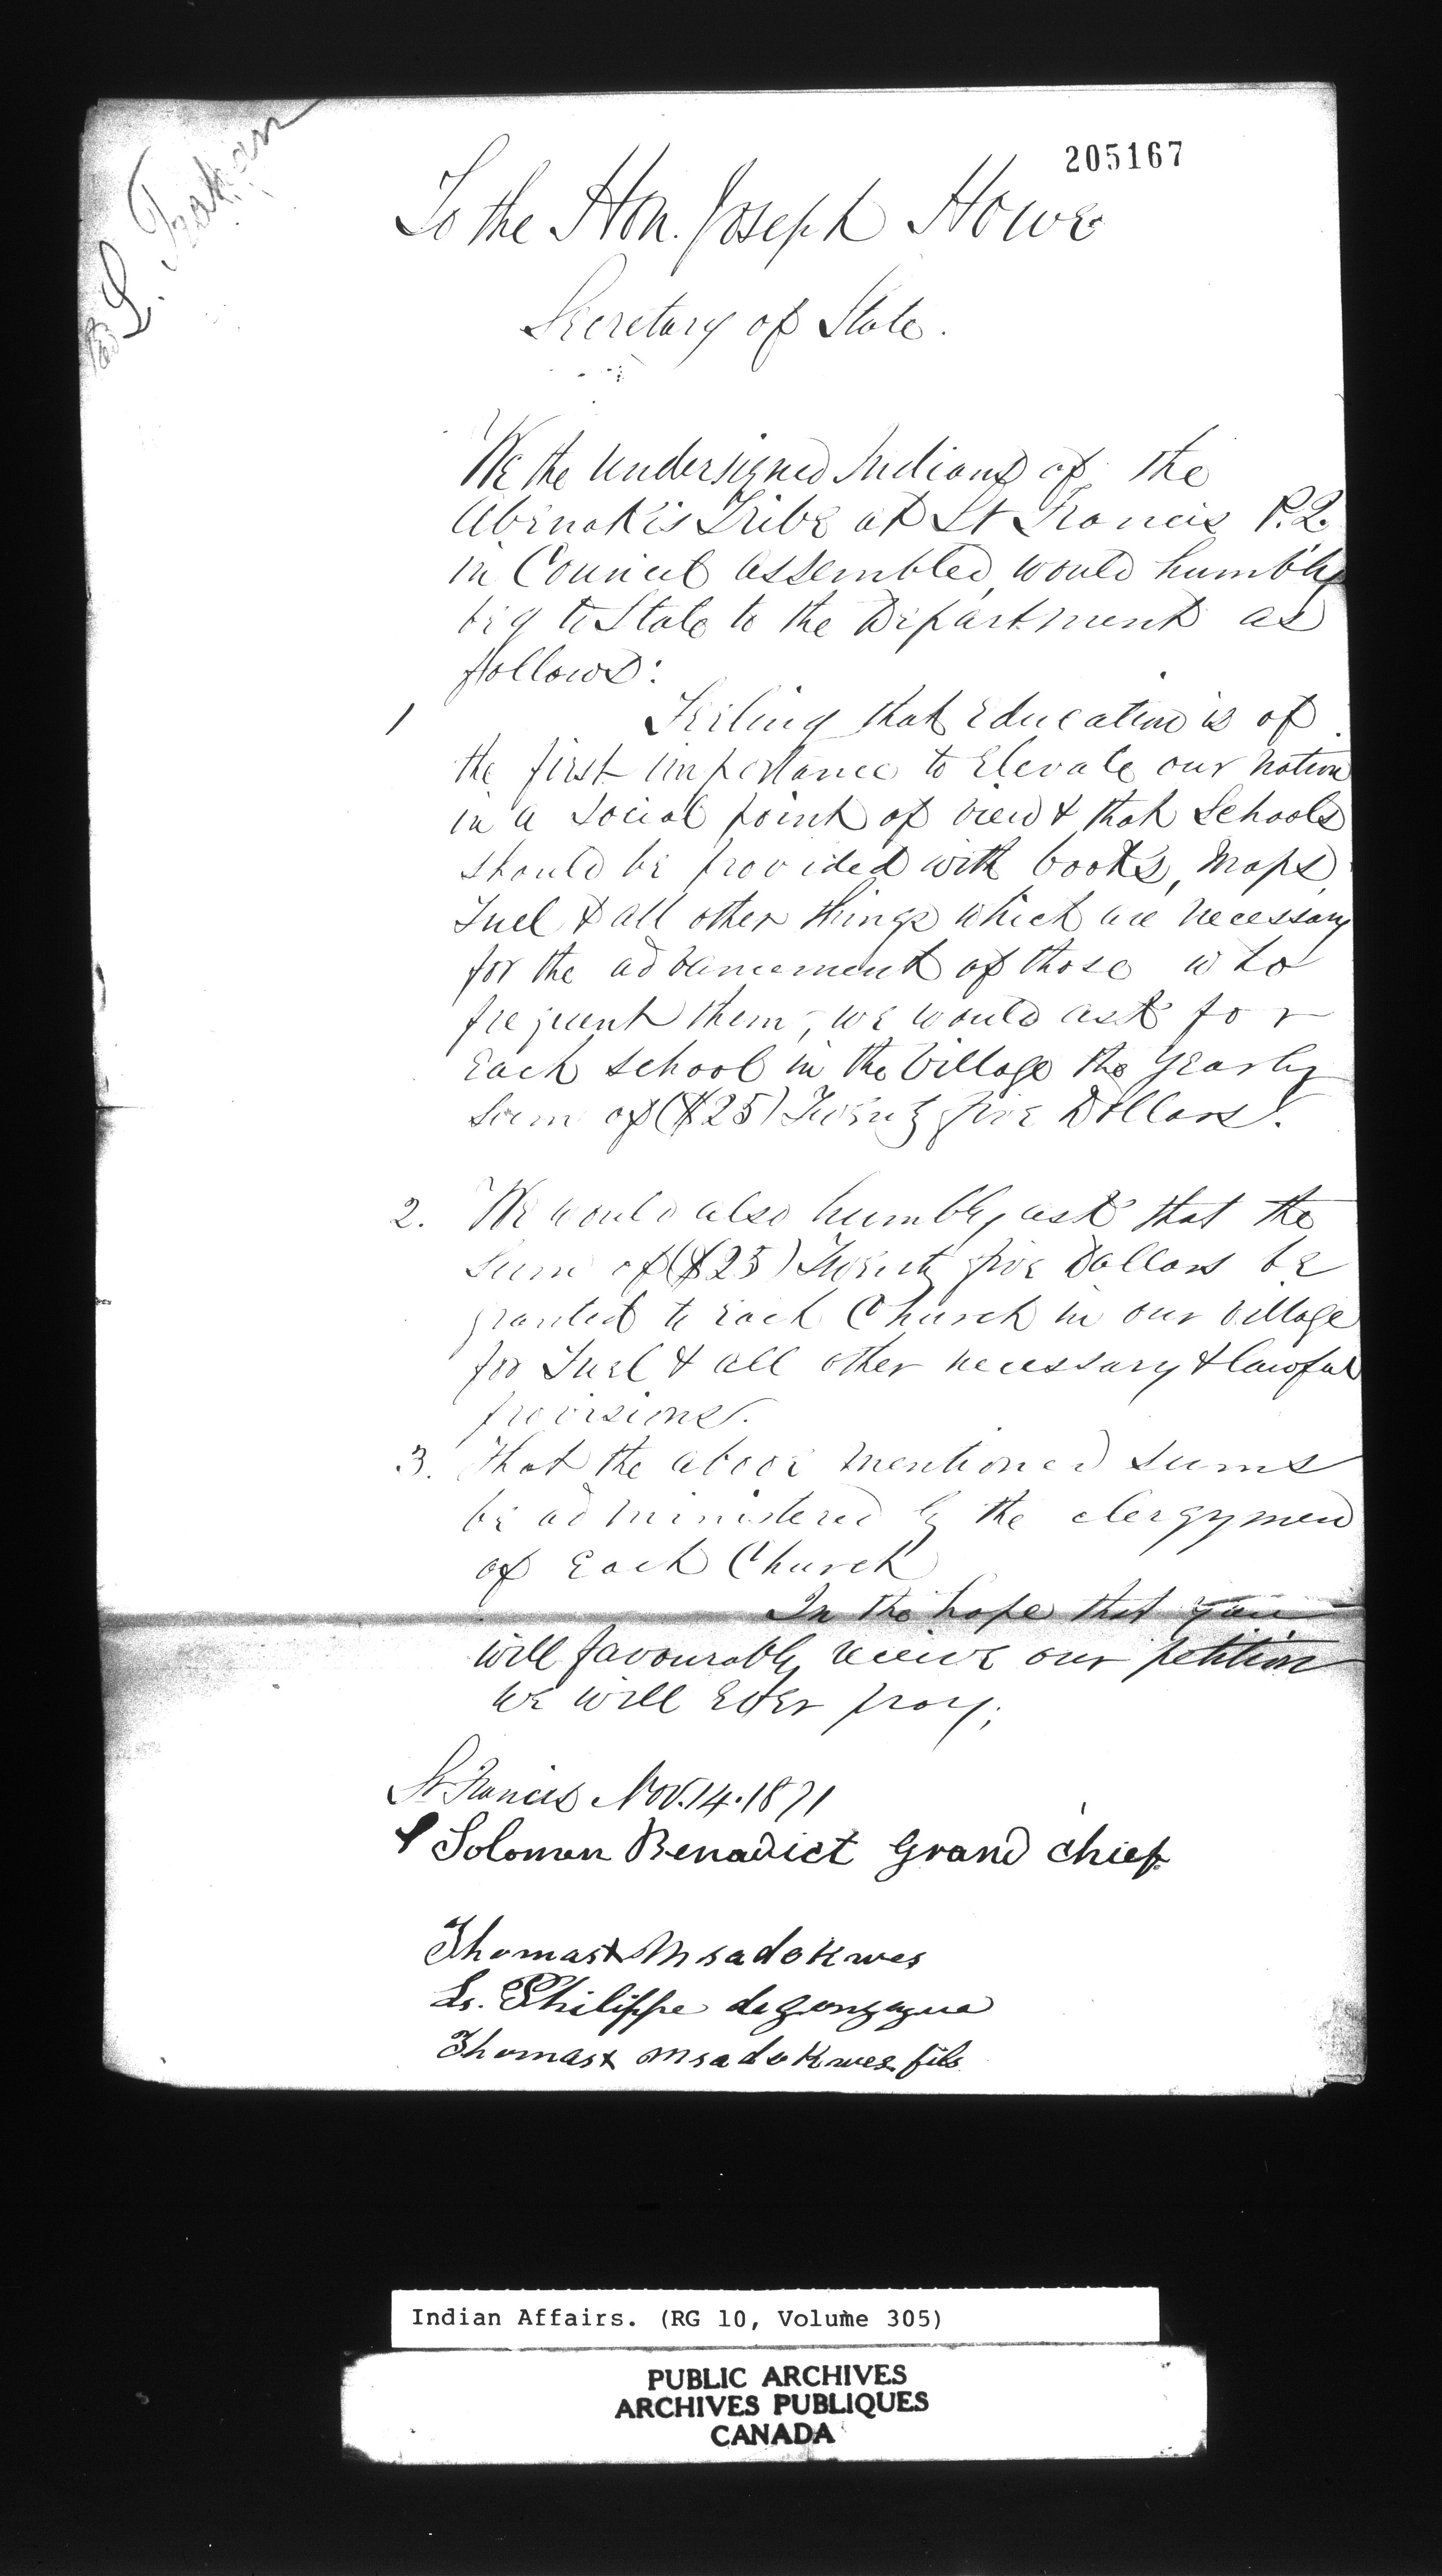 205167
L.
To the Hon. Joseph Howe
Secretary of State.
We the undersigned Indians of the
Abinakis Tribe at St Francis P.Q.
in Council assembled, would humbly
beg to State to the Department as
follows:
1 Feeling that education is of
the first importance to elevate our nation
in a social point of view & that Schools
should be provided with books, maps,
Fuel & all other things which are necessary
for the advancement of those who
frequent them, we would ask for
each school in the Village the yearly
sum of ($25) Twenty five Dollars.
2. We would also humbly ask that the
sum of ($25) Twenty five Dollars be
granted to each Church in our Village
for Fuel & all other necessary & lawful
provisions.
3. That the above mentioned sums
be administered by the clergymen
of each Church
In the hope that you
will favourably receive our petition
we will ever pray;
St Francis Nov. 14. 1871
Solomon Benadict Grand chief
Thomas x Msadokwes
Ls. Philippe de gonzague
Thomas x Msadokwes fils
Indian Affairs. (RG 10, Volume 305)
PUBLIC ARCHIVES
ARCHIVES PUBLIQUES
CANADA